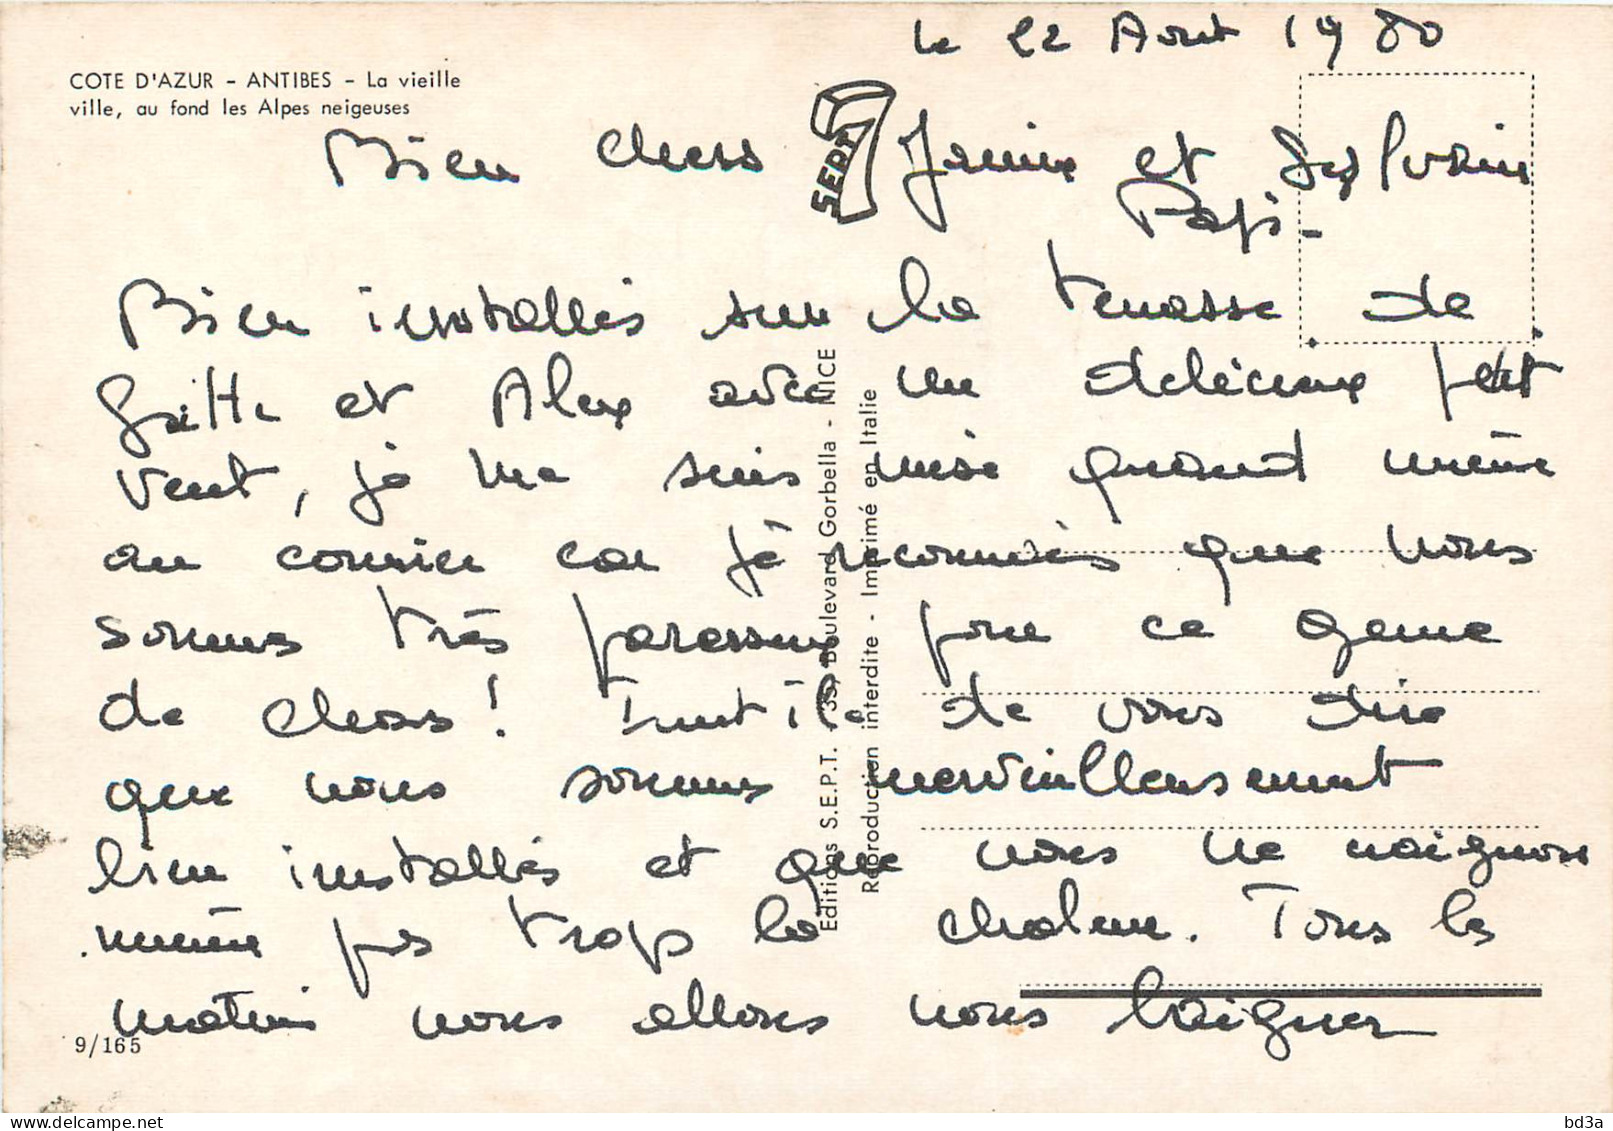 le 22 Aout 1980
COTE D'AZUR - ANTIBES - La vieille
ville, au fond les Alpes neigeuses
SEPT
Bien chers Janine et Sylvaine
Papi -
Bien installés sur la terrasse de
et Alex avec un délicieux petit
vent, je me suis mise quand même
au courrier car je reconnais que nous
sommes très paresseux pour ce genre
de choses ! Inutile de vous dire
que nous sommes merveilleusement
bien installés et que nous ne craignons
même pas trop la chaleur. Tous les
matins nous allons nous baigner
9/165
Editions S.E.P.T. - 33, Boulevard Gorbella - NICE
Reproduction interdite - Imprimé en Italie
bd3a